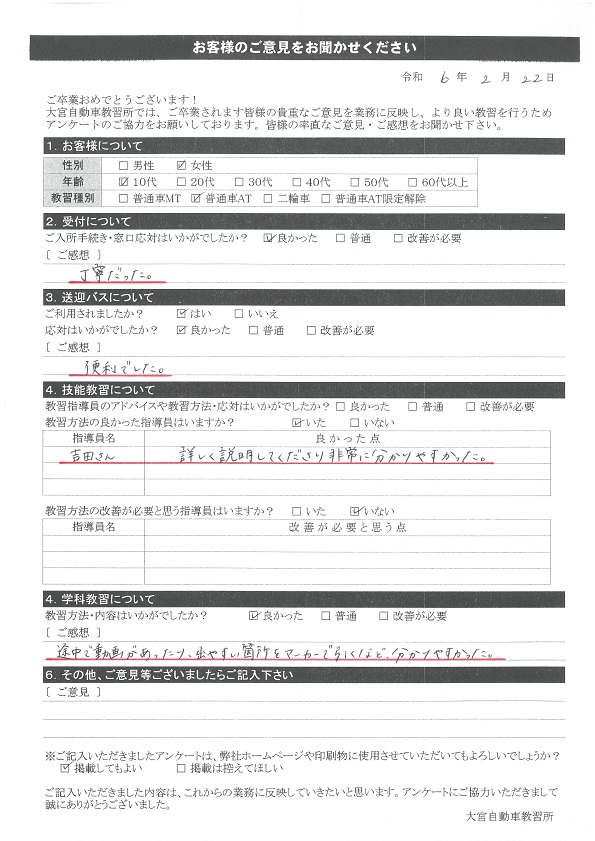 お客様のご意見をお聞かせください
令和 6 年 2 月 22 日
ご卒業おめでとうございます！
大宮自動車教習所では、ご卒業されます皆様の貴重なご意見を業務に反映し、より良い教習を行うため
アンケートのご協力をお願いしております。皆様の率直なご意見・ご感想をお聞かせ下さい。
1. お客様について
性別 □ 男性 ☑ 女性
年齢 ☑ 10代 □ 20代 □ 30代 □ 40代 □ 50代 □ 60代以上
教習種別 □ 普通車MT ☑ 普通車AT □ 二輪車 □ 普通車AT限定解除
2. 受付について
ご入所手続き・窓口応対はいかがでしたか？ ☑ 良かった □ 普通 □ 改善が必要
[ ご感想 ]
丁寧だった。
3. 送迎バスについて
ご利用されましたか？ ☑ はい □ いいえ
応対はいかがでしたか？ ☑ 良かった □ 普通 □ 改善が必要
[ ご感想 ]
便利でした。
4. 技能教習について
教習指導員のアドバイスや教習方法・応対はいかがでしたか？ □ 良かった □ 普通 □ 改善が必要
教習方法の良かった指導員はいますか？ ☑ いた □ いない
指導員名 良かった点
吉田さん 詳しく説明してくださり非常に分かりやすかった。
教習方法の改善が必要と思う指導員はいますか？ □ いた ☑ いない
指導員名 改善が必要と思う点
4. 学科教習について
教習方法・内容はいかがでしたか？ ☑ 良かった □ 普通 □ 改善が必要
[ ご感想 ]
途中で動画があったり、出やすい箇所をマーカーで引くなど、分かりやすかった。
6. その他、ご意見等ございましたらご記入下さい
[ ご意見 ]
※ご記入いただきましたアンケートは、弊社ホームページや印刷物に使用させていただいてもよろしいでしょうか？
☑ 掲載してもよい □ 掲載は控えてほしい
ご記入いただきました内容は、これからの業務に反映していきたいと思います。アンケートにご協力いただきまして
誠にありがとうございました。
大宮自動車教習所